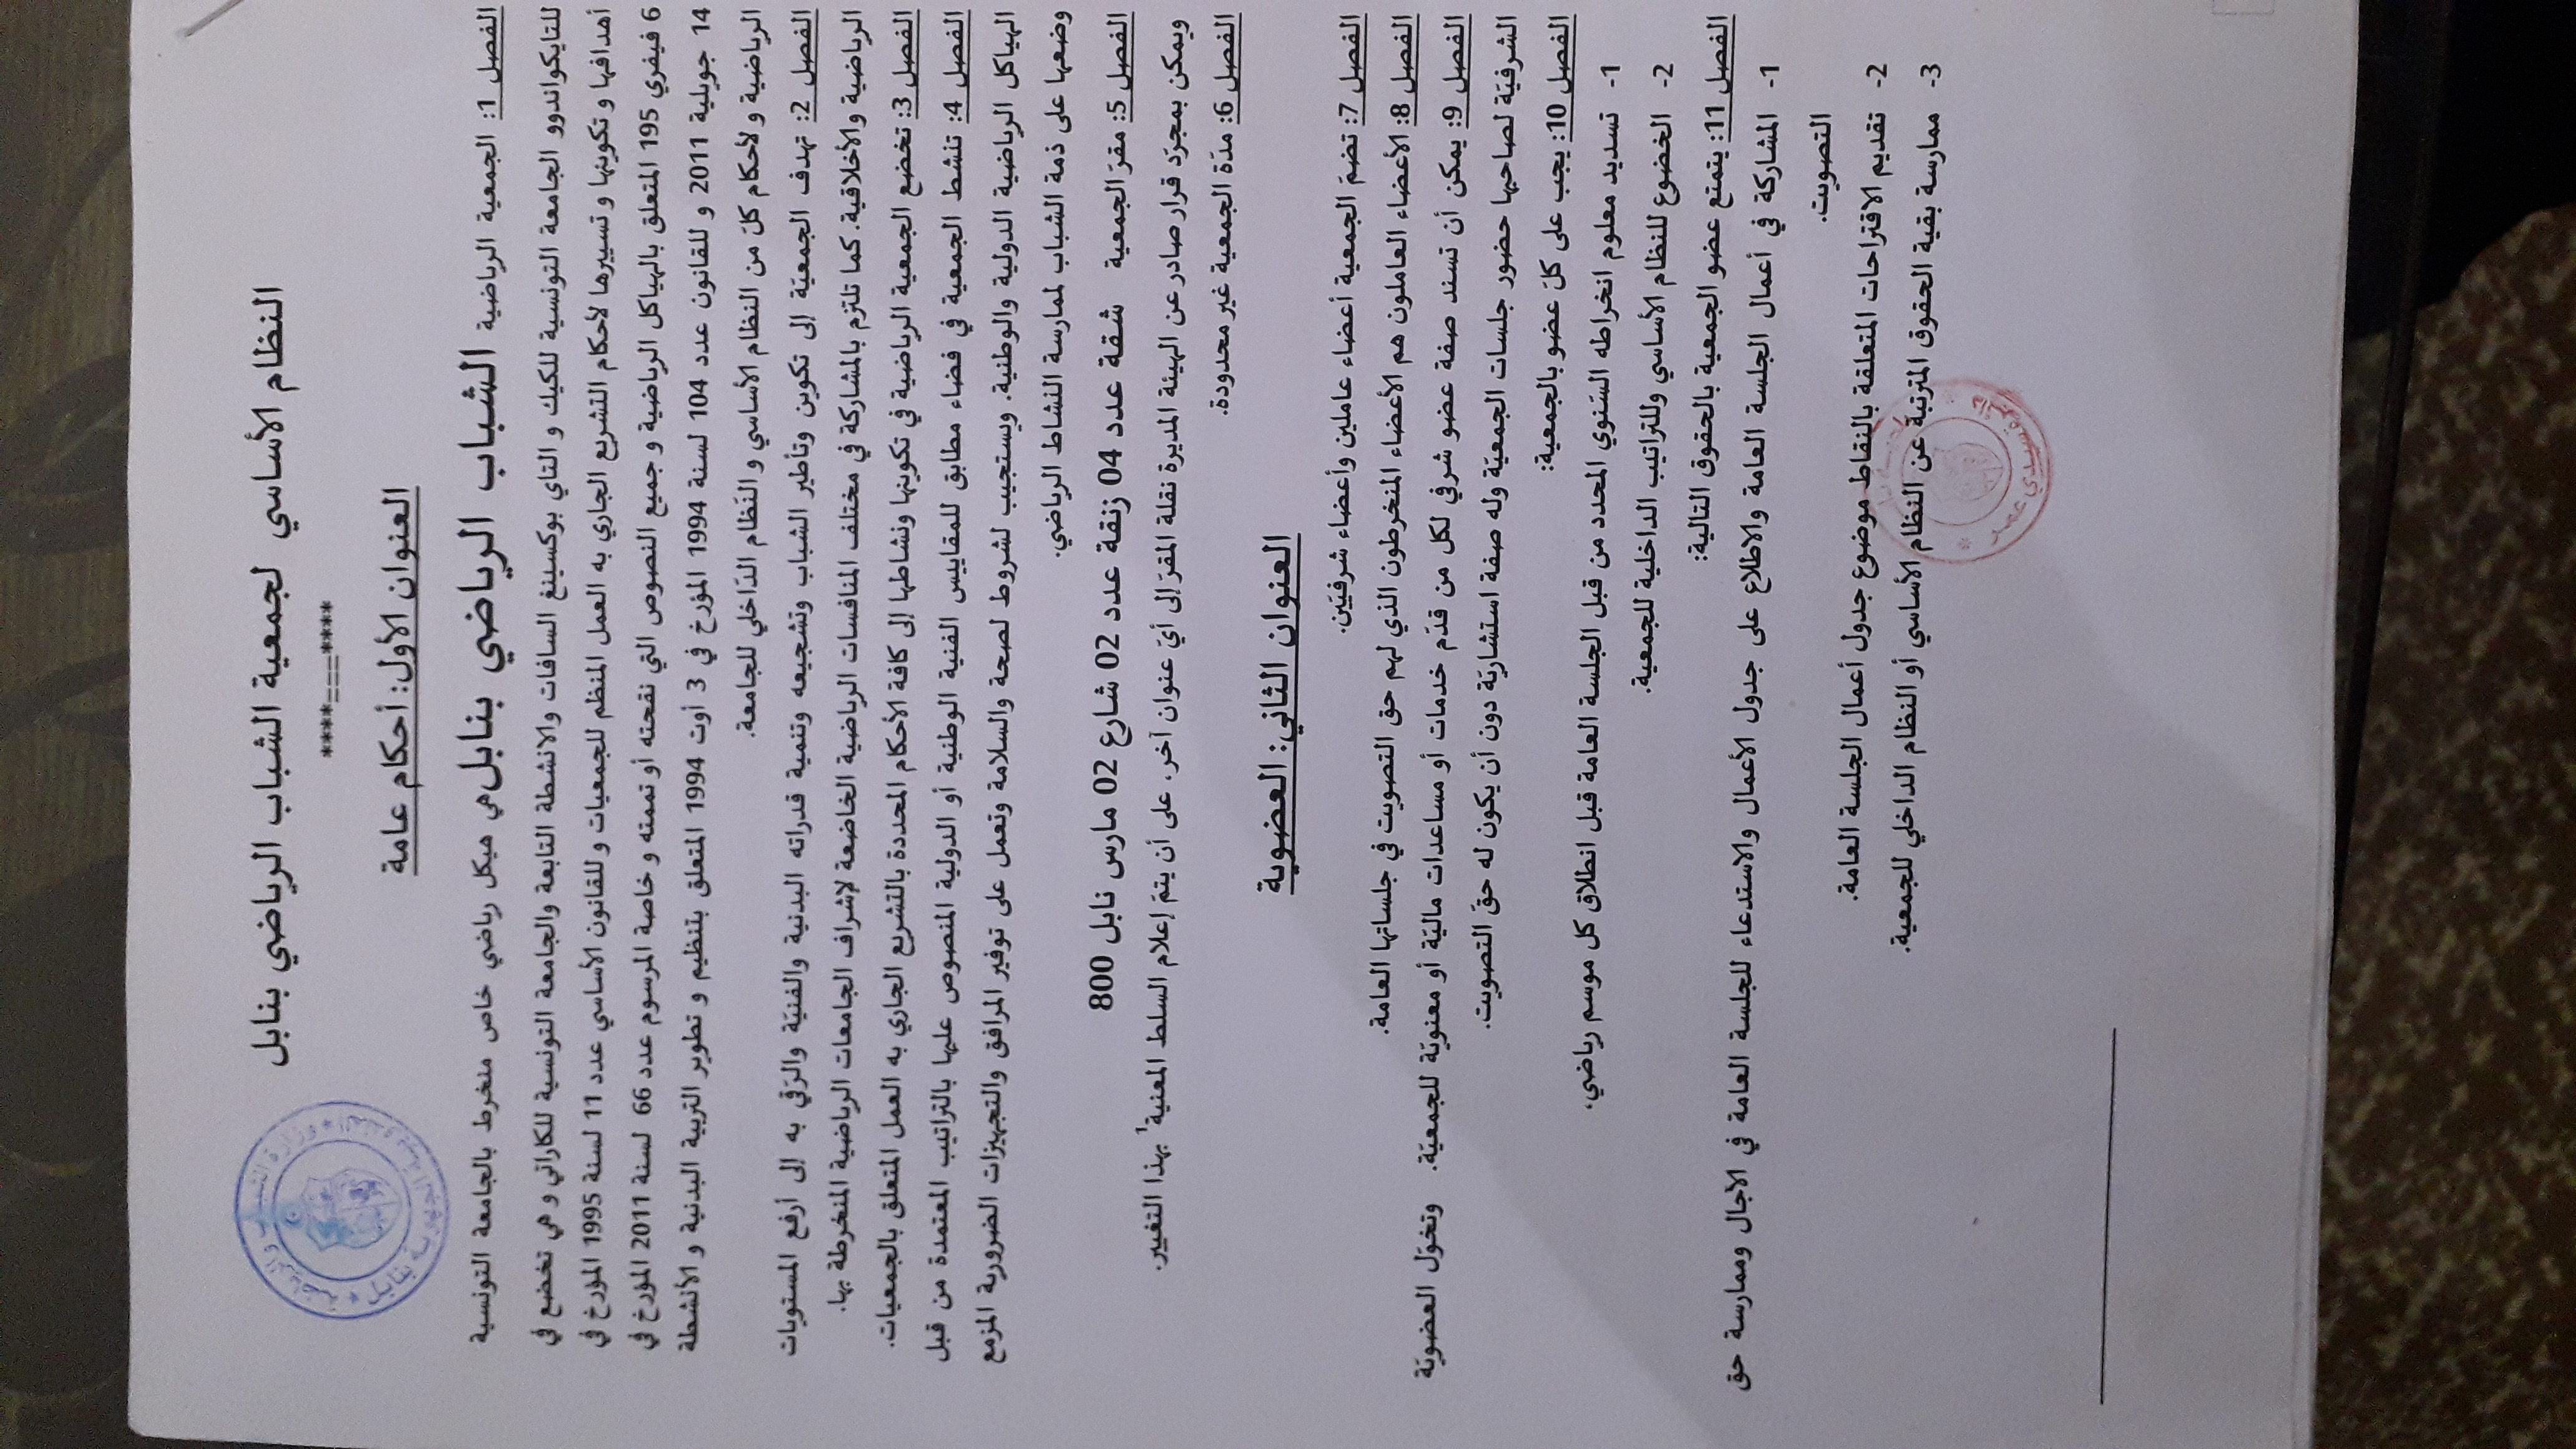 النظام الأساسي لجمعية الشباب الرياضي بنابل
****===****
العنوان الأول: أحكام عامة
الفصل 1: الجمعية الرياضية الشباب الرياضي بنابل هي هيكل رياضي خاص منخرط بالجامعة التونسية
للتايكواندوو الجامعة التونسية للكيك و التاي بوكسينغ السافات والانشطة التابعة والجامعة التونسية للكاراتي و هي تخضع في
أهدافها و تكوينها و تسييرها لأحكام التشريع الجاري به العمل المنظم للجمعيات و للقانون الأساسي عدد 11 لسنة 1995 المؤرخ في
6 فيفري 195 المتعلق بالهياكل الرياضية و جميع النصوص التي نقحته أو تممته و خاصة المرسوم عدد 66 لسنة 2011 المؤرخ في
14 جويلية 2011 و للقانون عدد 104 لسنة 1994 المؤرخ في 3 أوت 1994 المتعلق بتنظيم و تطوير التربية البدنية و الأنشطة
الرياضية و لأحكام كل من النظام الأساسي و النظام الداخلي للجامعة.
الفصل 2: تهدف الجمعيّة إلى تكوين وتأطير الشباب وتشجيعه وتنمية قدراته البدنية والفنيّة والرّقي به إلى أرفع المستويات
الرياضية والأخلاقية. كما تلتزم بالمشاركة في مختلف المنافسات الرياضية الخاضعة لإشراف الجامعات الرياضية المنخرطة بها.
الفصل 3: تخضع الجمعية الرياضية في تكوينها ونشاطها إلى كافة الأحكام المحددة بالتشريع الجاري به العمل المتعلق بالجمعيات.
الفصل 4: تنشط الجمعية في فضاء مطابق للمقاييس الفنية الوطنية أو الدولية المنصوص عليها بالتراتيب المعتمدة من قبل
الهياكل الرياضية الدولية والوطنية. ويستجيب لشروط لصحة والسلامة وتعمل على توفير المرافق والتجهيزات الضرورية المزمع
وضعها على ذمة الشباب لممارسة النشاط الرياضي.
الفصل 5: مقرّ الجمعية شقة عدد 04 زنقة عدد 02 شارع 02 مارس نابل 800
ويمكن بمجرّد قرار صادر عن الهيئة المديرة نقلة المقرّ إلى أيّ عنوان آخر. على أن يتمّ إعلام السلط المعنية' بهذا التغيير.
الفصل 6: مدّة الجمعية غير محدودة.
العنوان الثاني: العضوية
الفصل 7: تضمّ الجمعية أعضاء عاملين وأعضاء شرفيّين.
الفصل 8: الأعضاء العاملون هم الأعضاء المنخرطون الذي لهم حق التصويت في جلساتها العامة.
الفصل 9: يمكن أن تسند صفة عضو شرفي لكل من قدّم خدمات أو مساعدات ماليّة أو معنويّة للجمعيّة. وتخوّل العضويّة
الشرفيّة لصاحبها حضور جلسات الجمعيّة وله صفة استشاريّة دون أن يكون له حقّ التصويت.
الفصل 10: يجب على كلّ عضو بالجمعية:
1- تسديد معلوم انخراطه السّنوي المحدد من قبل الجلسة العامة قبل انطلاق كل موسم رياضي.
2- الخضوع للنظام الأساسي وللتراتيب الداخلية للجمعية.
الفصل 11: يتمتع عضو الجمعية بالحقوق التالية:
1- المشاركة في أعمال الجلسة العامة والاطلاع على جدول الأعمال والاستدعاء للجلسة العامة في الآجال وممارسة حق
التصويت.
2- تقديم الاقتراحات المتعلقة بالنقاط موضوع جدول أعمال الجلسة العامة.
3- ممارسة بقية الحقوق المترتبة عن النظام الأساسي أو النظام الداخلي للجمعية.